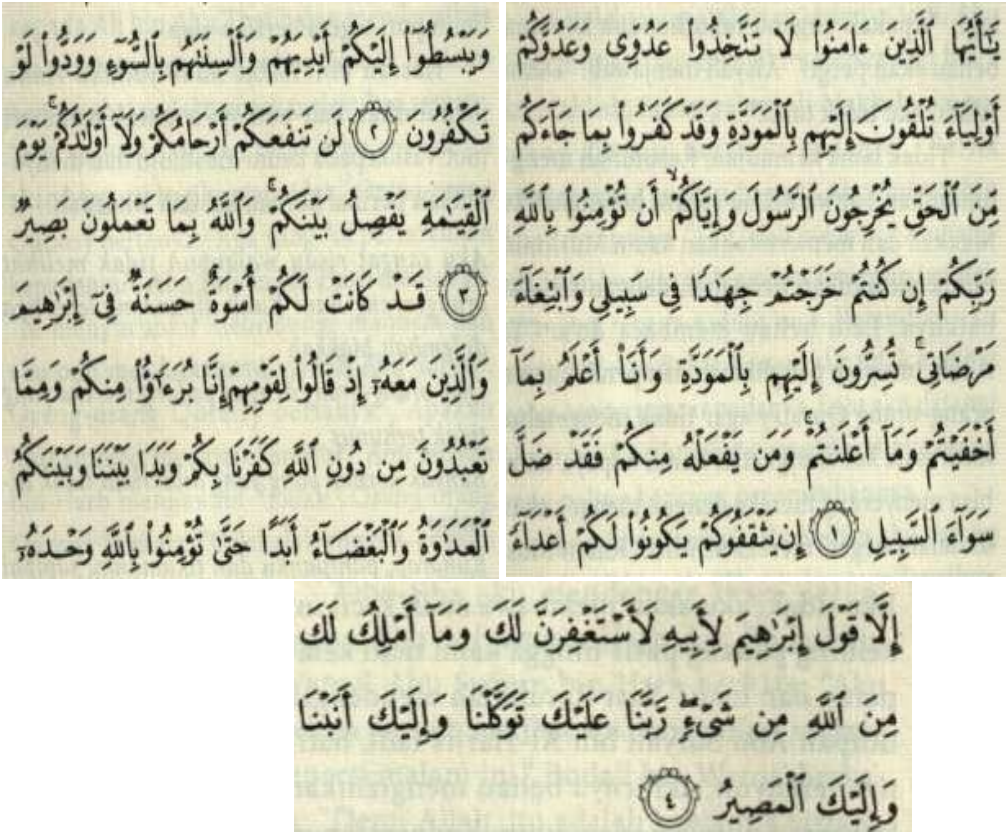 يَـٰٓأَيُّهَا ٱلَّذِينَ ءَامَنُوا۟ لَا تَتَّخِذُوا۟ عَدُوِّى وَعَدُوَّكُمْ
أَوْلِيَآءَ تُلْقُونَ إِلَيْهِم بِٱلْمَوَدَّةِ وَقَدْ كَفَرُوا۟ بِمَا جَآءَكُم
مِّنَ ٱلْحَقِّ يُخْرِجُونَ ٱلرَّسُولَ وَإِيَّاكُمْ ۙ أَن تُؤْمِنُوا۟ بِٱللَّهِ
رَبِّكُمْ إِن كُنتُمْ خَرَجْتُمْ جِهَـٰدًا فِى سَبِيلِى وَٱبْتِغَآءَ
مَرْضَاتِى ۚ تُسِرُّونَ إِلَيْهِم بِٱلْمَوَدَّةِ وَأَنَا۠ أَعْلَمُ بِمَآ
أَخْفَيْتُمْ وَمَآ أَعْلَنتُمْ ۚ وَمَن يَفْعَلْهُ مِنكُمْ فَقَدْ ضَلَّ
سَوَآءَ ٱلسَّبِيلِ ١ إِن يَثْقَفُوكُمْ يَكُونُوا۟ لَكُمْ أَعْدَآءً
وَيَبْسُطُوٓا۟ إِلَيْكُمْ أَيْدِيَهُمْ وَأَلْسِنَتَهُم بِٱلسُّوٓءِ وَوَدُّوا۟ لَوْ
تَكْفُرُونَ ٢ لَن تَنفَعَكُمْ أَرْحَامُكُمْ وَلَآ أَوْلَـٰدُكُمْ ۚ يَوْمَ
ٱلْقِيَـٰمَةِ يَفْصِلُ بَيْنَكُمْ ۚ وَٱللَّهُ بِمَا تَعْمَلُونَ بَصِيرٌ
٣ قَدْ كَانَتْ لَكُمْ أُسْوَةٌ حَسَنَةٌ فِىٓ إِبْرَٰهِيمَ
وَٱلَّذِينَ مَعَهُۥٓ إِذْ قَالُوا۟ لِقَوْمِهِمْ إِنَّا بُرَءَٰٓؤُا۟ مِنكُمْ وَمِمَّا
تَعْبُدُونَ مِن دُونِ ٱللَّهِ كَفَرْنَا بِكُمْ وَبَدَا بَيْنَنَا وَبَيْنَكُمُ
ٱلْعَدَٰوَةُ وَٱلْبَغْضَآءُ أَبَدًا حَتَّىٰ تُؤْمِنُوا۟ بِٱللَّهِ وَحْدَهُۥٓ
إِلَّا قَوْلَ إِبْرَٰهِيمَ لِأَبِيهِ لَأَسْتَغْفِرَنَّ لَكَ وَمَآ أَمْلِكُ لَكَ
مِنَ ٱللَّهِ مِن شَىْءٍ ۖ رَّبَّنَا عَلَيْكَ تَوَكَّلْنَا وَإِلَيْكَ أَنَبْنَا
وَإِلَيْكَ ٱلْمَصِيرُ ٤